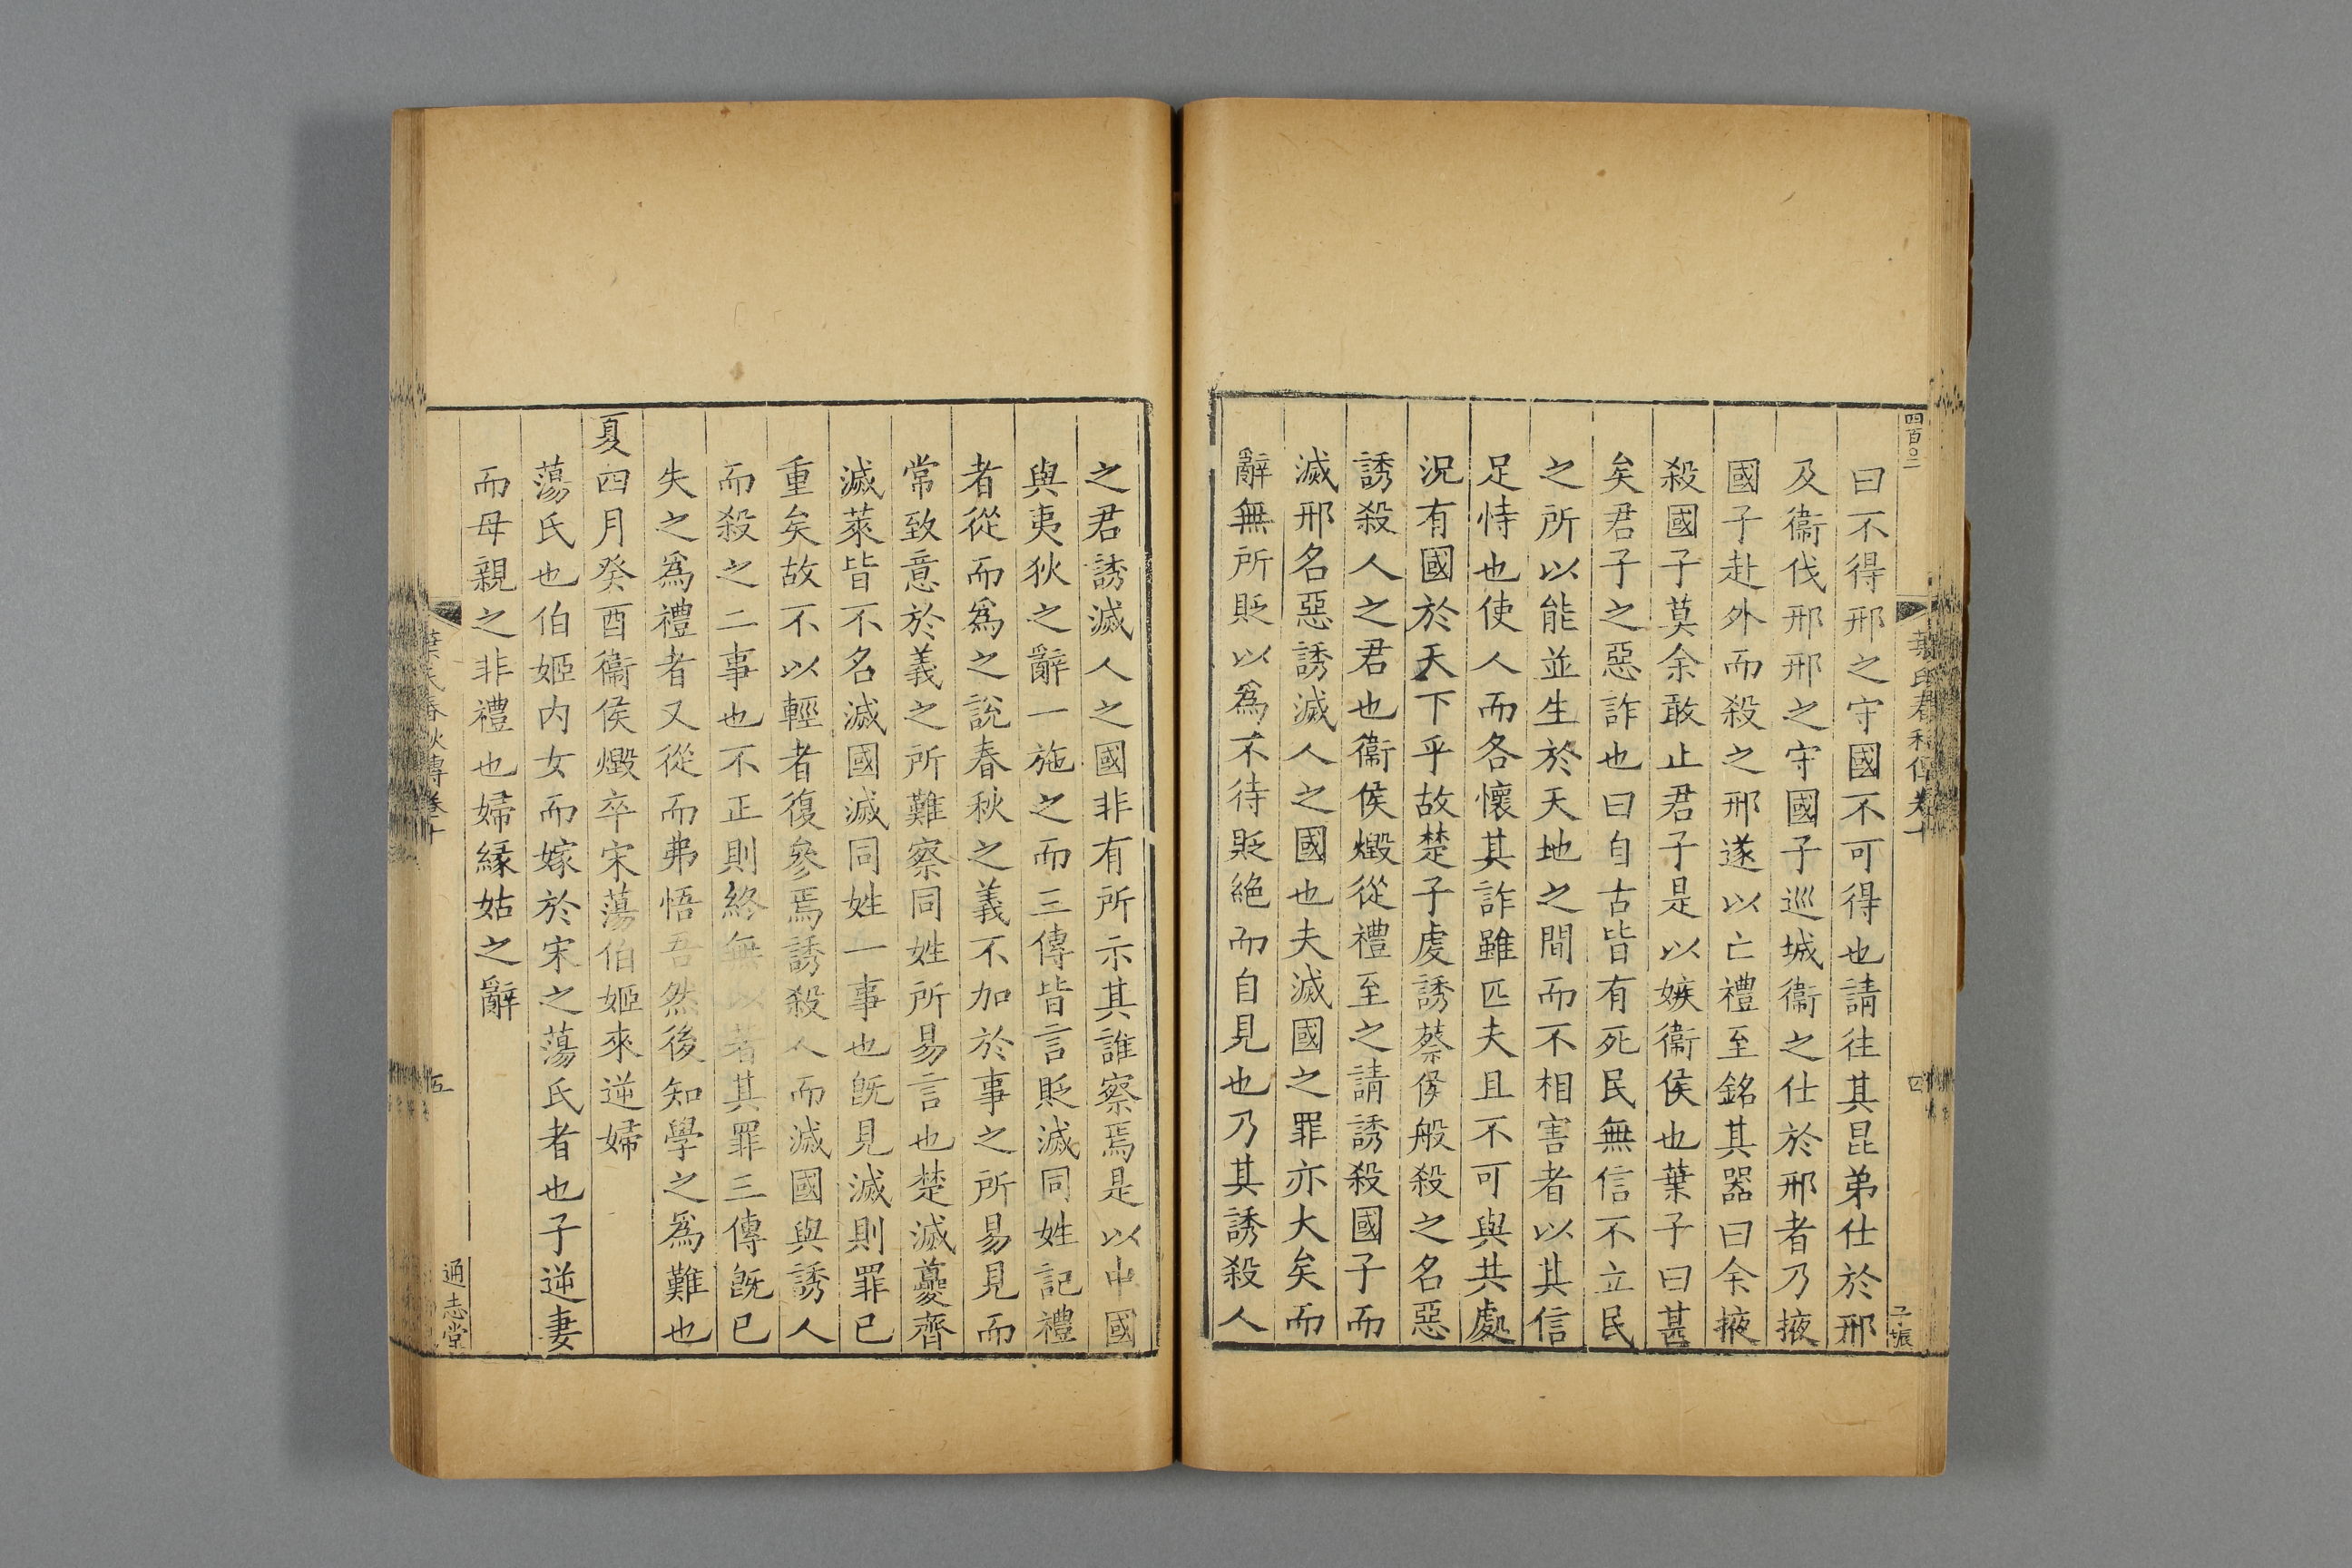 四百〇二
葉氏春秋傳卷十
四
子振
曰不得邢之守國不可得也請往其昆弟仕於邢
及衞伐邢邢之守國子巡城衞之仕於邢者乃掖
國子赴外而殺之邢遂以亡禮至銘其器曰余掖
殺國子莫余敢止君子是以嫉衞侯也葉子曰甚
矣君子之惡詐也曰自古皆有死民無信不立民
之所以能並生於天地之間而不相害者以其信
足恃也使人而各懷其詐雖匹夫且不可與共處
況有國於天下乎故楚子虔誘蔡侯般殺之名惡
誘殺人之君也衞侯燬從禮至之請誘殺國子而
滅邢名惡誘滅人之國也夫滅國之罪亦大矣而
辭無所貶以爲不待貶絶而自見也乃其誘殺人
之君誘滅人之國非有所示其誰察焉是以中國
與夷狄之辭一施之而三傳皆言貶滅同姓記禮
者從而爲之說春秋之義不加於事之所易見而
常致意於義之所難察同姓所易言也楚滅夔齊
滅萊皆不名滅國滅同姓一事也旣見滅則罪已
重矣故不以輕者復參焉誘殺人而滅國與誘人
而殺之二事也不正則終無以著其罪三傳旣已
失之爲禮者又從而弗悟吾然後知學之爲難也
夏四月癸酉衞侯燬卒宋蕩伯姬來逆婦
蕩氏也伯姬内女而嫁於宋之蕩氏者也子逆妻
而母親之非禮也婦緣姑之辭
葉氏春秋傳卷十
五
通志堂